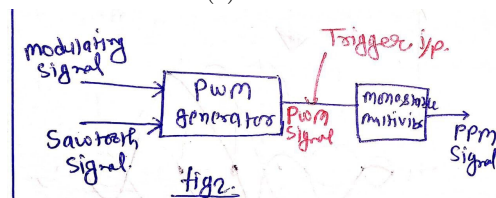 modulating
Signal
Sawtooth
Signal.
PWM
generator
Trigger i/p.
PWM
Signal
monostable
multivibr
PPM
Signal
fig2.